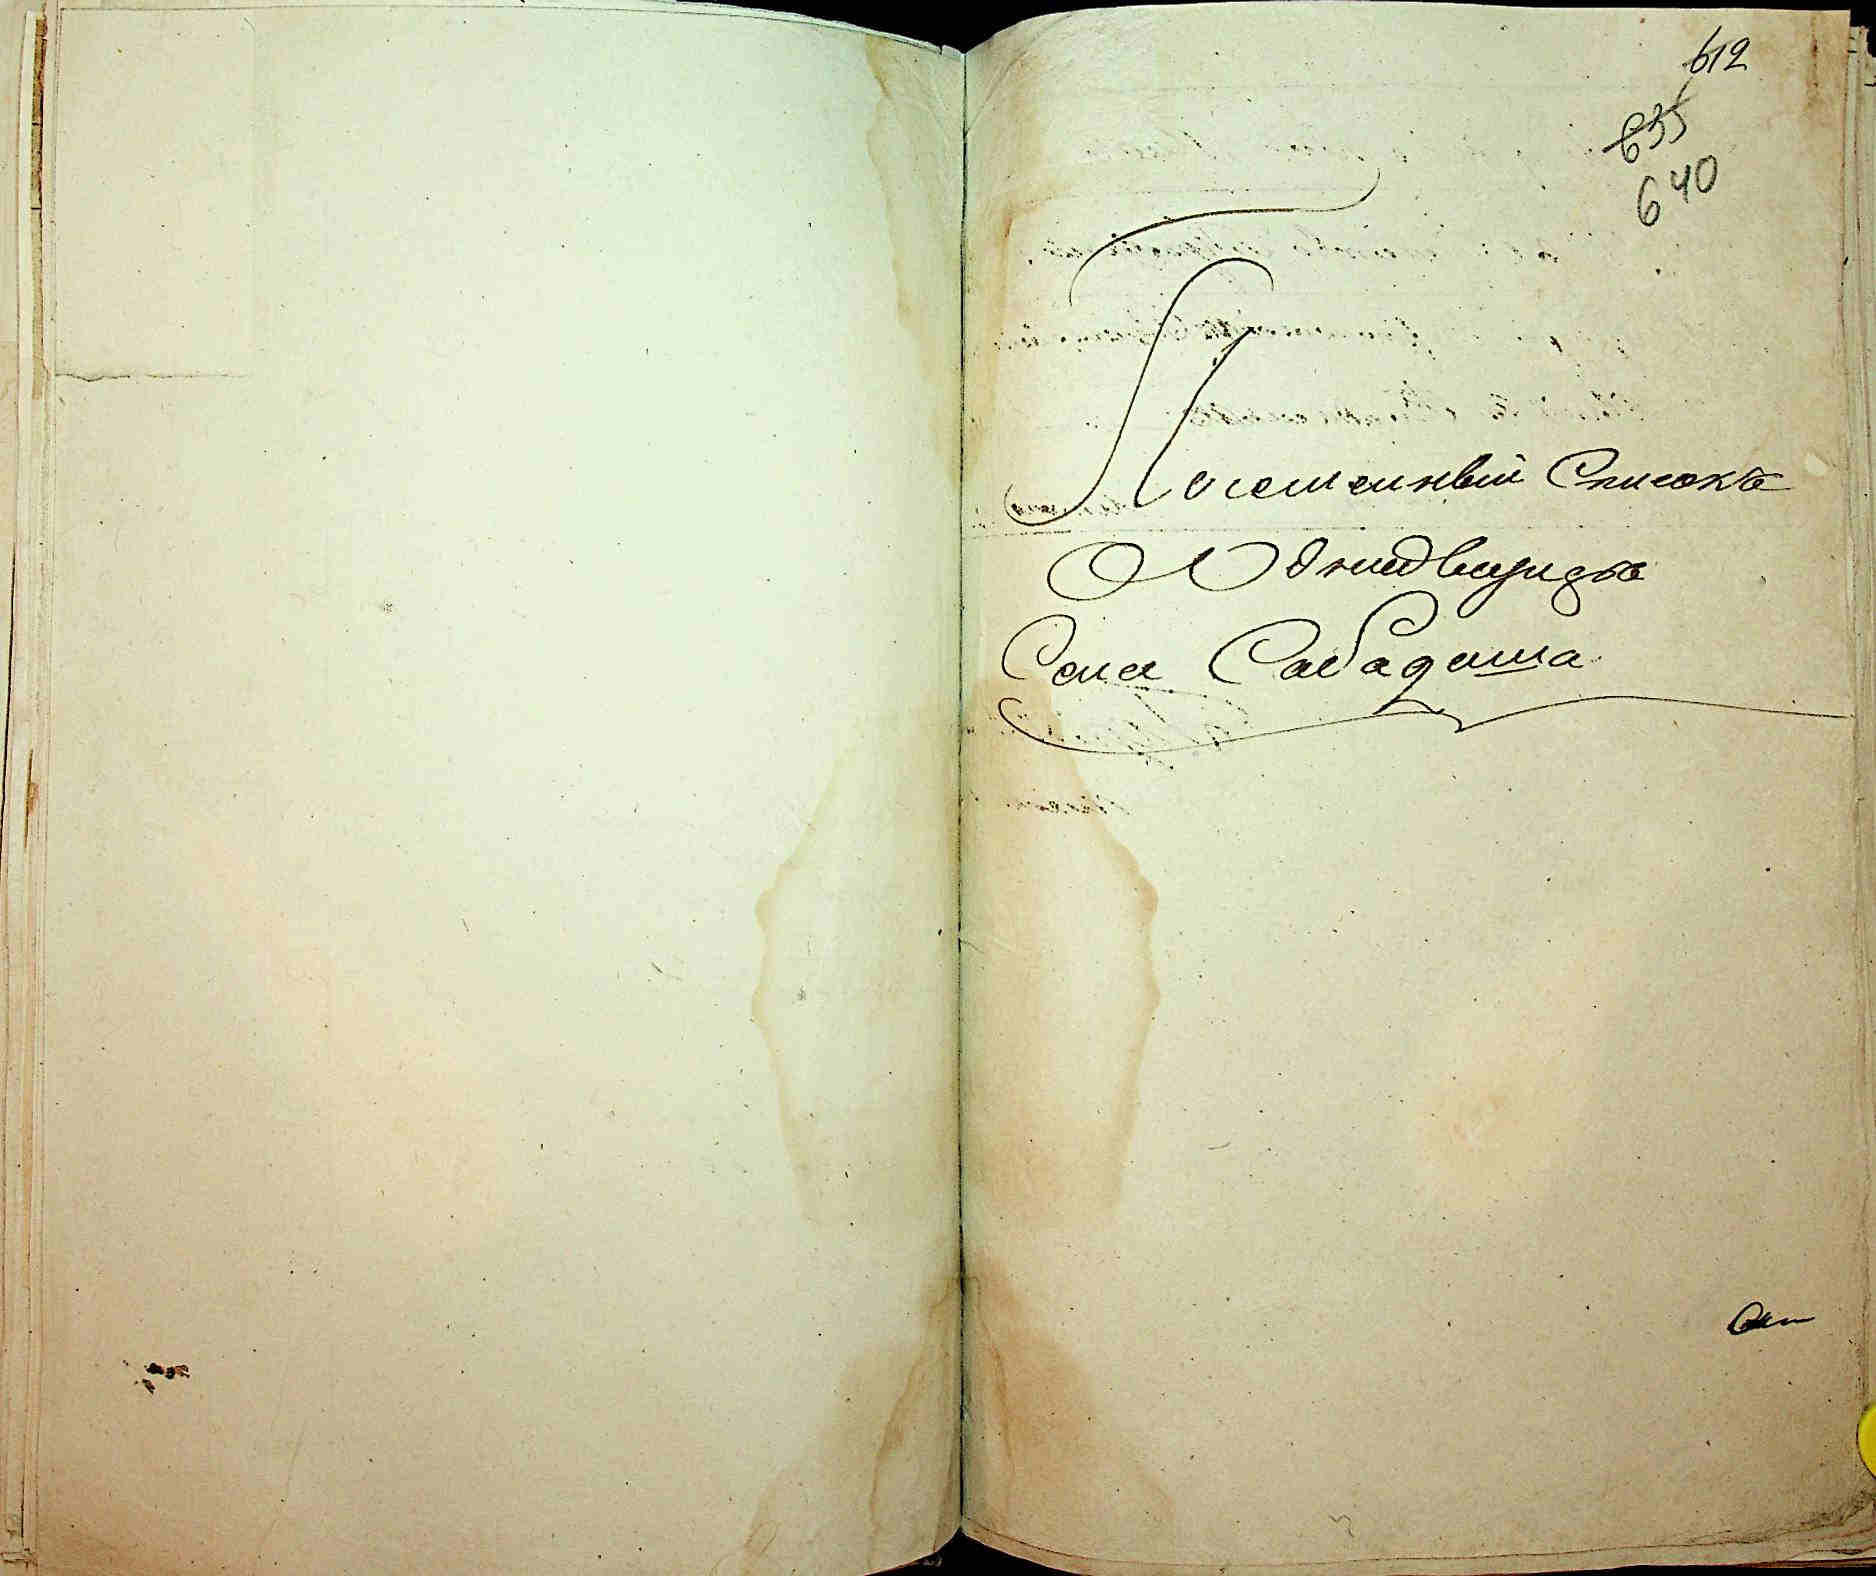 612
635
640
Посемейный Списокъ
Однодворцовъ
Села Сабадаша